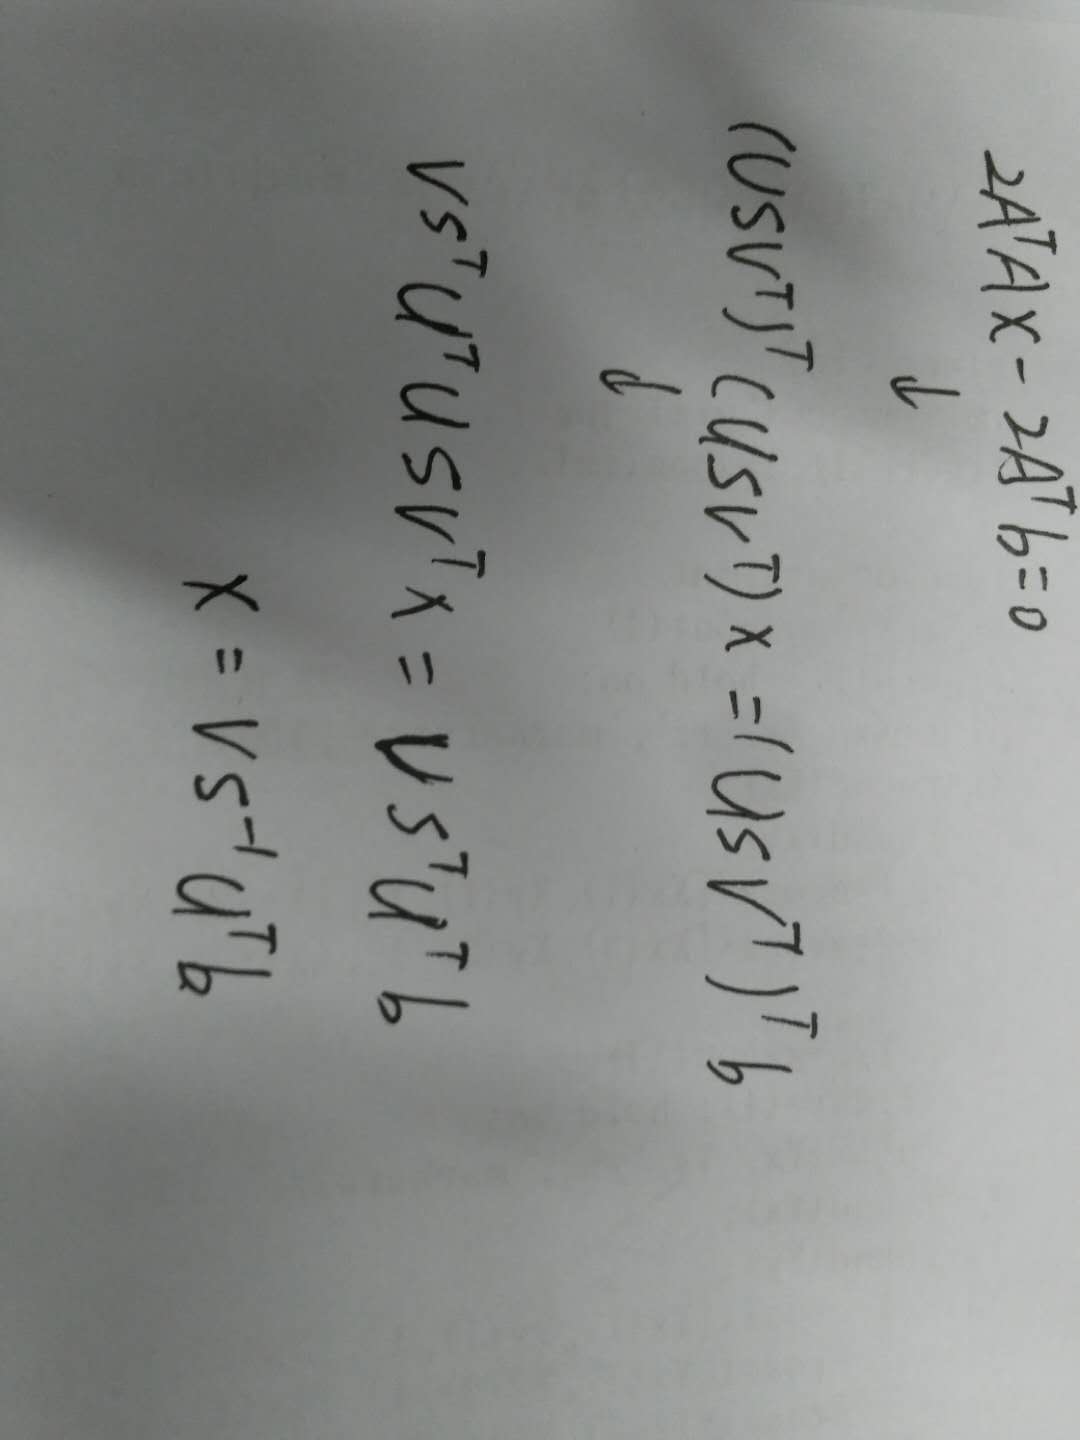 2AᵀAx - 2Aᵀb = 0
↓
(USVᵀ)ᵀ(USVᵀ)x = (USVᵀ)ᵀb
↓
VSᵀUᵀUSVᵀx = VSᵀUᵀb
x = VS⁻¹Uᵀb